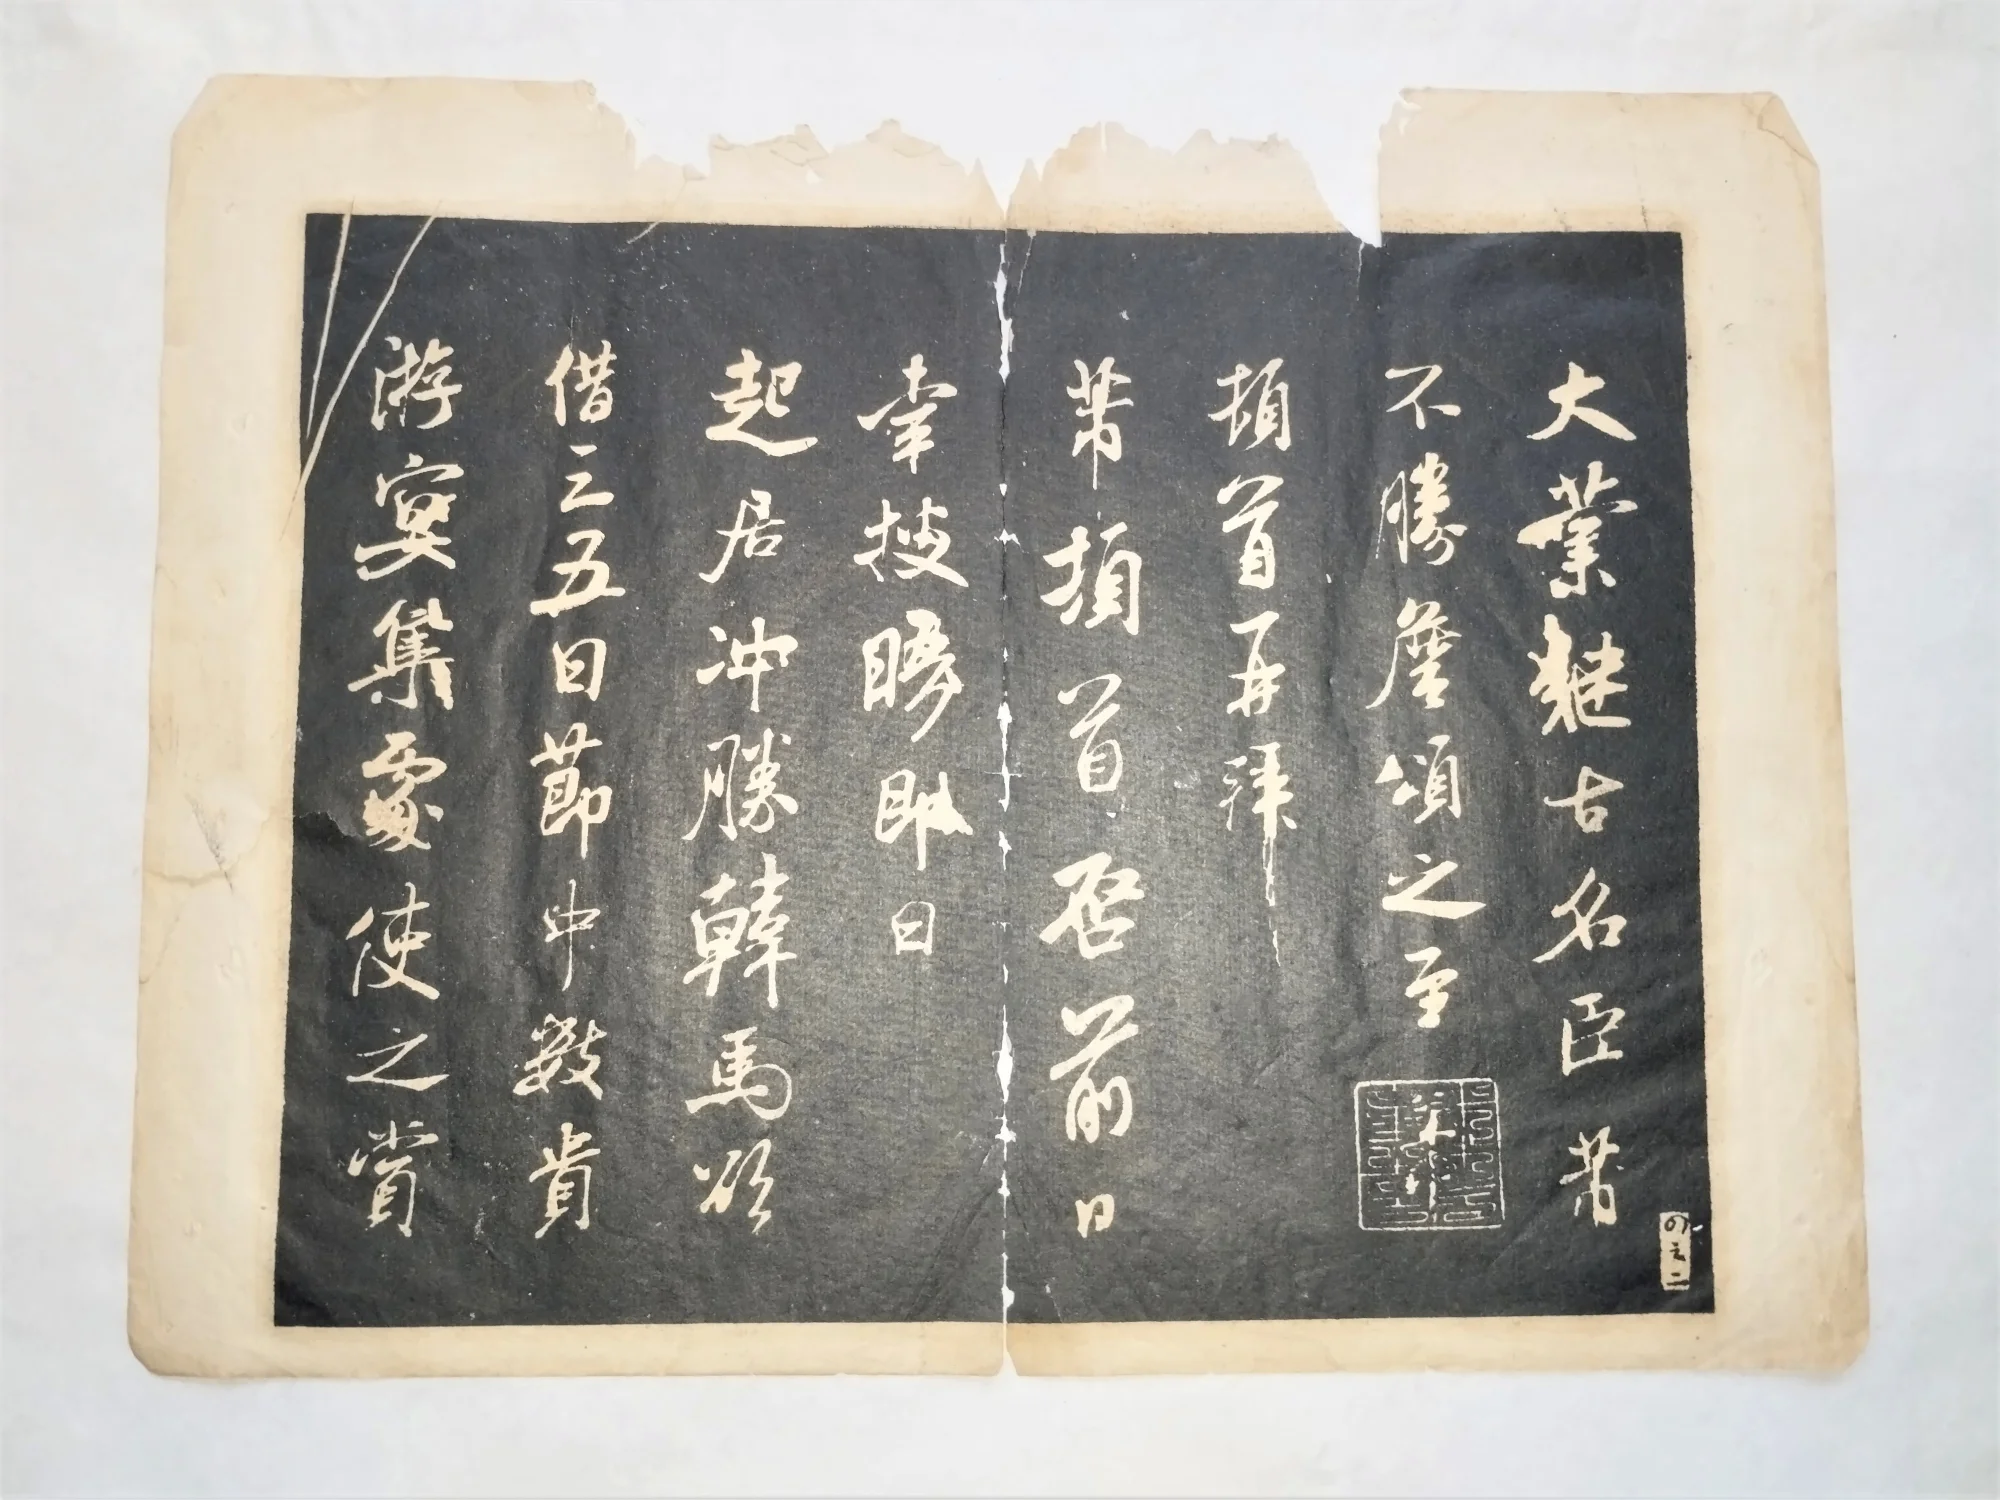 大業繼古名臣芾
不勝詹頌之至
頓首再拜
芾頓首啓前日
幸披晤即日
起居沖勝韓馬欲
借三五日節中數貴
游宴集處使之賞